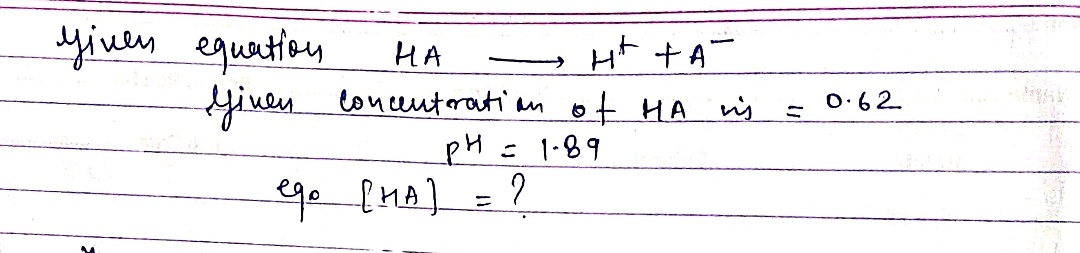 Given equation HA ⟶ H⁺ + A⁻
Given concentration of HA is = 0.62
pH = 1.89
eqo [HA] = ?